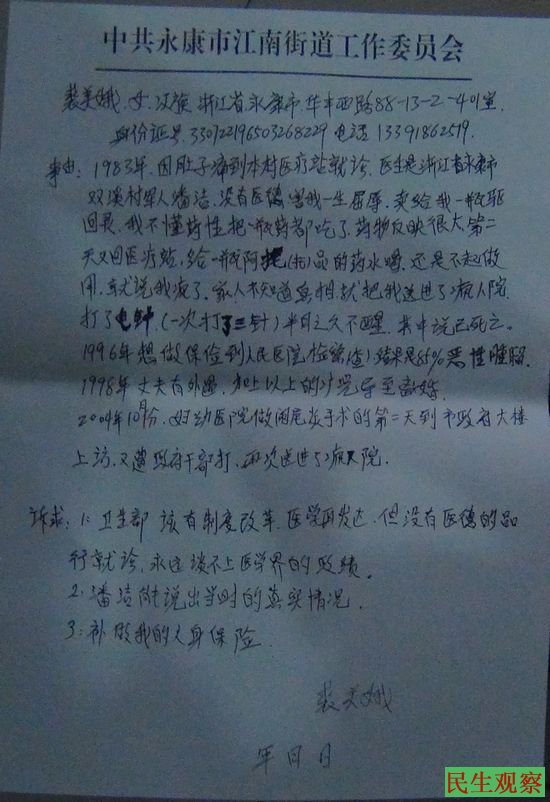 中共永康市江南街道工作委员会
裴美娥,女,汉族,浙江省永康市,华丰西路88-13-2-401室
身份证号 330722196503268229 电话 13391862519.
事由:1983年,因肚子痛到本村医疗站就诊,医生是浙江省永康市
双溪村军人潘洁,没有医德,害我一生屈辱,卖给我一瓶驱
回灵,我不懂药性把一瓶药都吃了,药物反映很大,第二
天又回医疗站,给一瓶阿托(托)品的药水喝,还是不起做
用,就说我疯了,家人不知道真相就把我送进了病人院,
打了电针,(一次打了三针)半月之久不醒,其中说已死亡。
1996年想做保险到人民医院检验(查)结果是85%恶性肿瘤.
1998年丈夫有外遇,加上以上的导至离婚.
2004年10月份,妇幼医院做阑尾炎手术的第二天到市政府大楼
上访,又遭政府干部打,再次送进了病人院.
诉求:1:卫生部该有制度改革,医学再发达,但没有医德的品
行就诊,永远谈不上医学界的政绩。
2:潘洁能说出当时的真实情况.
3:补助我的人身保险.
裴美娥
年月日
民生观察